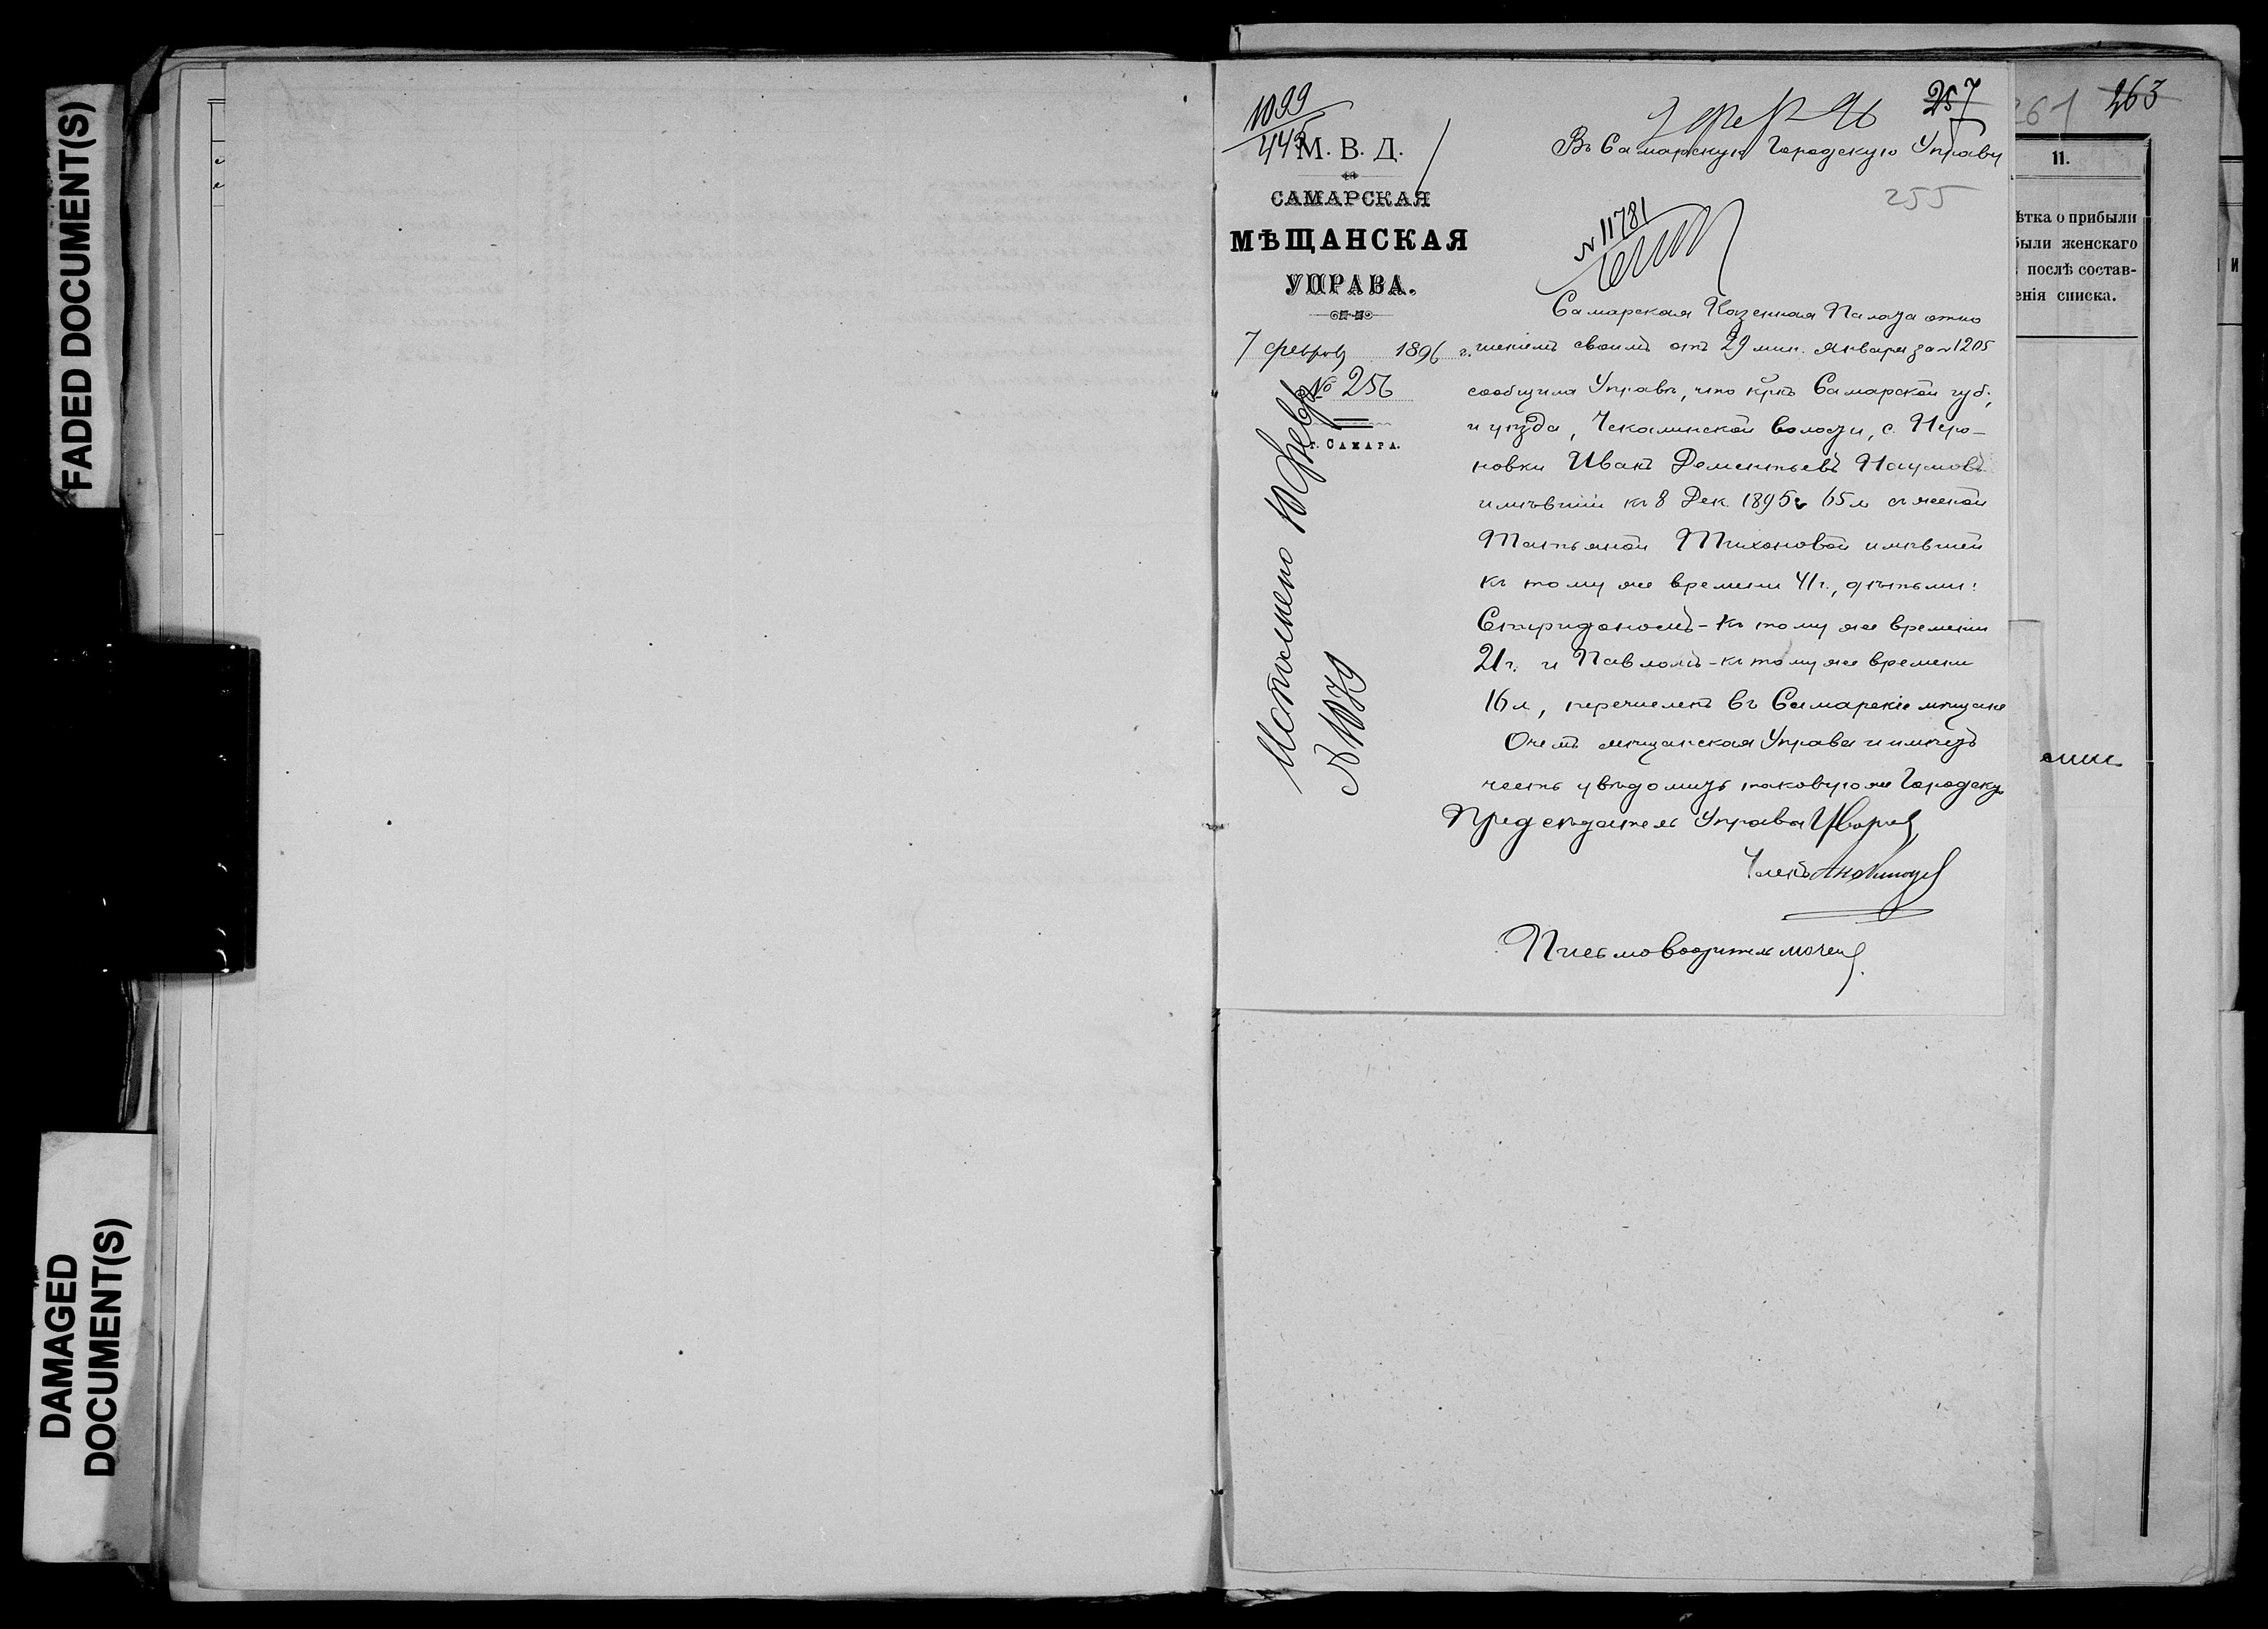 FADED DOCUMENT(S)
DAMAGED
DOCUMENT(S)
1099
445
М. В. Д.
САМАРСКАЯ
МѢЩАНСКАЯ
УПРАВА.
7 февр 1896 г.
№ 256
г. САМАРА.
Исполнено 10 февр
№ 1079
257
Въ Самарскую Городскую Управу
255
№ 11781
Самарская Казенная Палата отно
шеніемъ своимъ отъ 29 мин. Января за № 1205
сообщила Управѣ, что кр‑нъ Самарской губ.,
и уѣзда, Чекалинской волости, с.
новки Иванъ Дементьевъ Наумовъ
имѣвшій къ 8 Дек. 1895 г 65 л съ женой
Татьяной Тихоновой имѣвшей
къ тому же времени 41 г., дѣтьми:
Спиридономъ - къ тому же времени
21 г. и Павломъ - къ тому же времени
16 л, перечисленъ въ Самарскіе мѣщане
О чемъ мѣщанская Управа и имѣетъ
честь увѣдомить таковую же Городску
Предсѣдатель Управы
Членъ
Письмоводитель
261 263
11.
ѣтка о прибыли
были женскаго
послѣ состав-
енія списка.